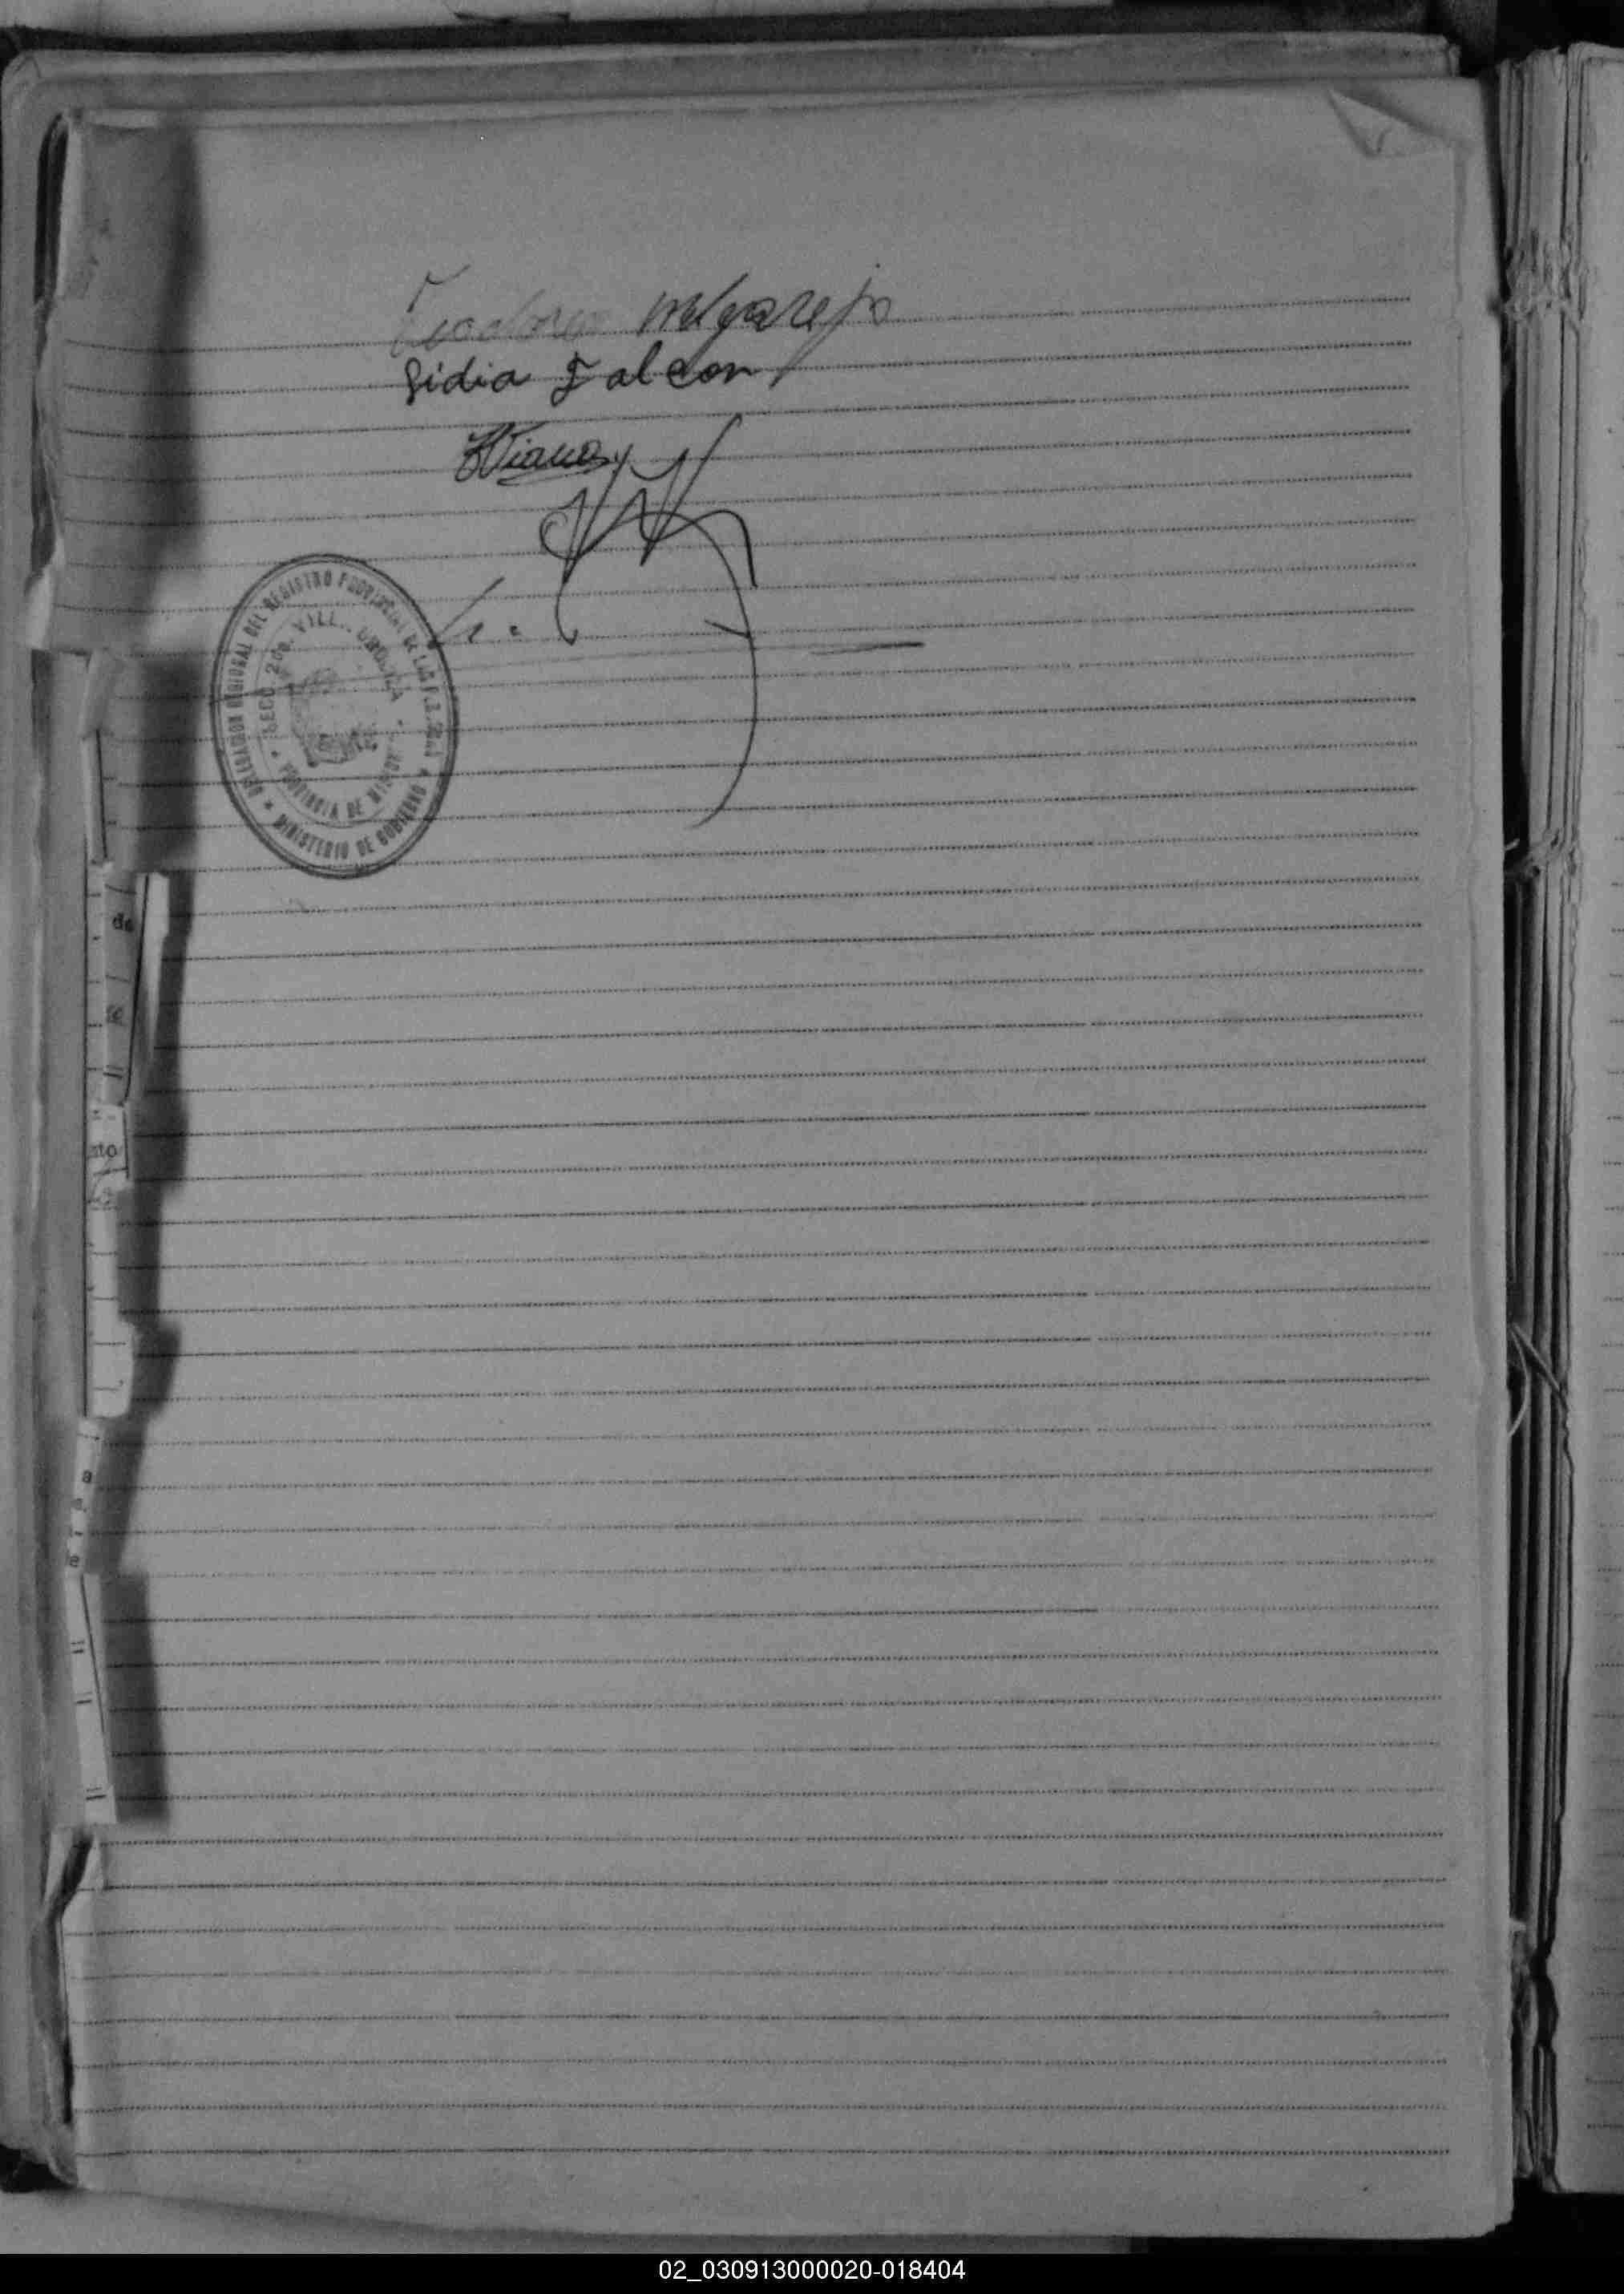 Teodoro Melgarejo
Lidia Falcon
Viana
DELEGACION REGIONAL DEL REGISTRO PROVINCIAL DE LAS P.
SECC. 2da. VILL. URQUIZA
PROVINCIA DE MISIONES
MINISTERIO DE GOBIERNO
de
nto
a
e
02_030913000020-018404